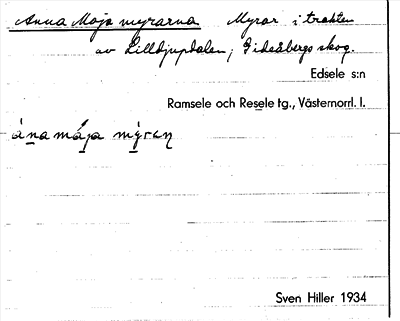 Anna Maja myrarna Myrar i trakten
av Lilldjupdalen, Gideåbergs skog.
Edsele s:n
Ramsele och Resele tg., Västernorrl. l.
ána mája mýrɑn
Sven Hiller 1934